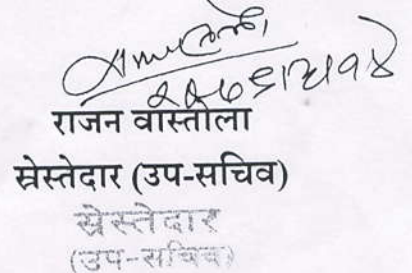 राजन वास्तोला
स्रेस्तेदार (उप-सचिव)
स्रेस्तेदार
(उप-सचिव)